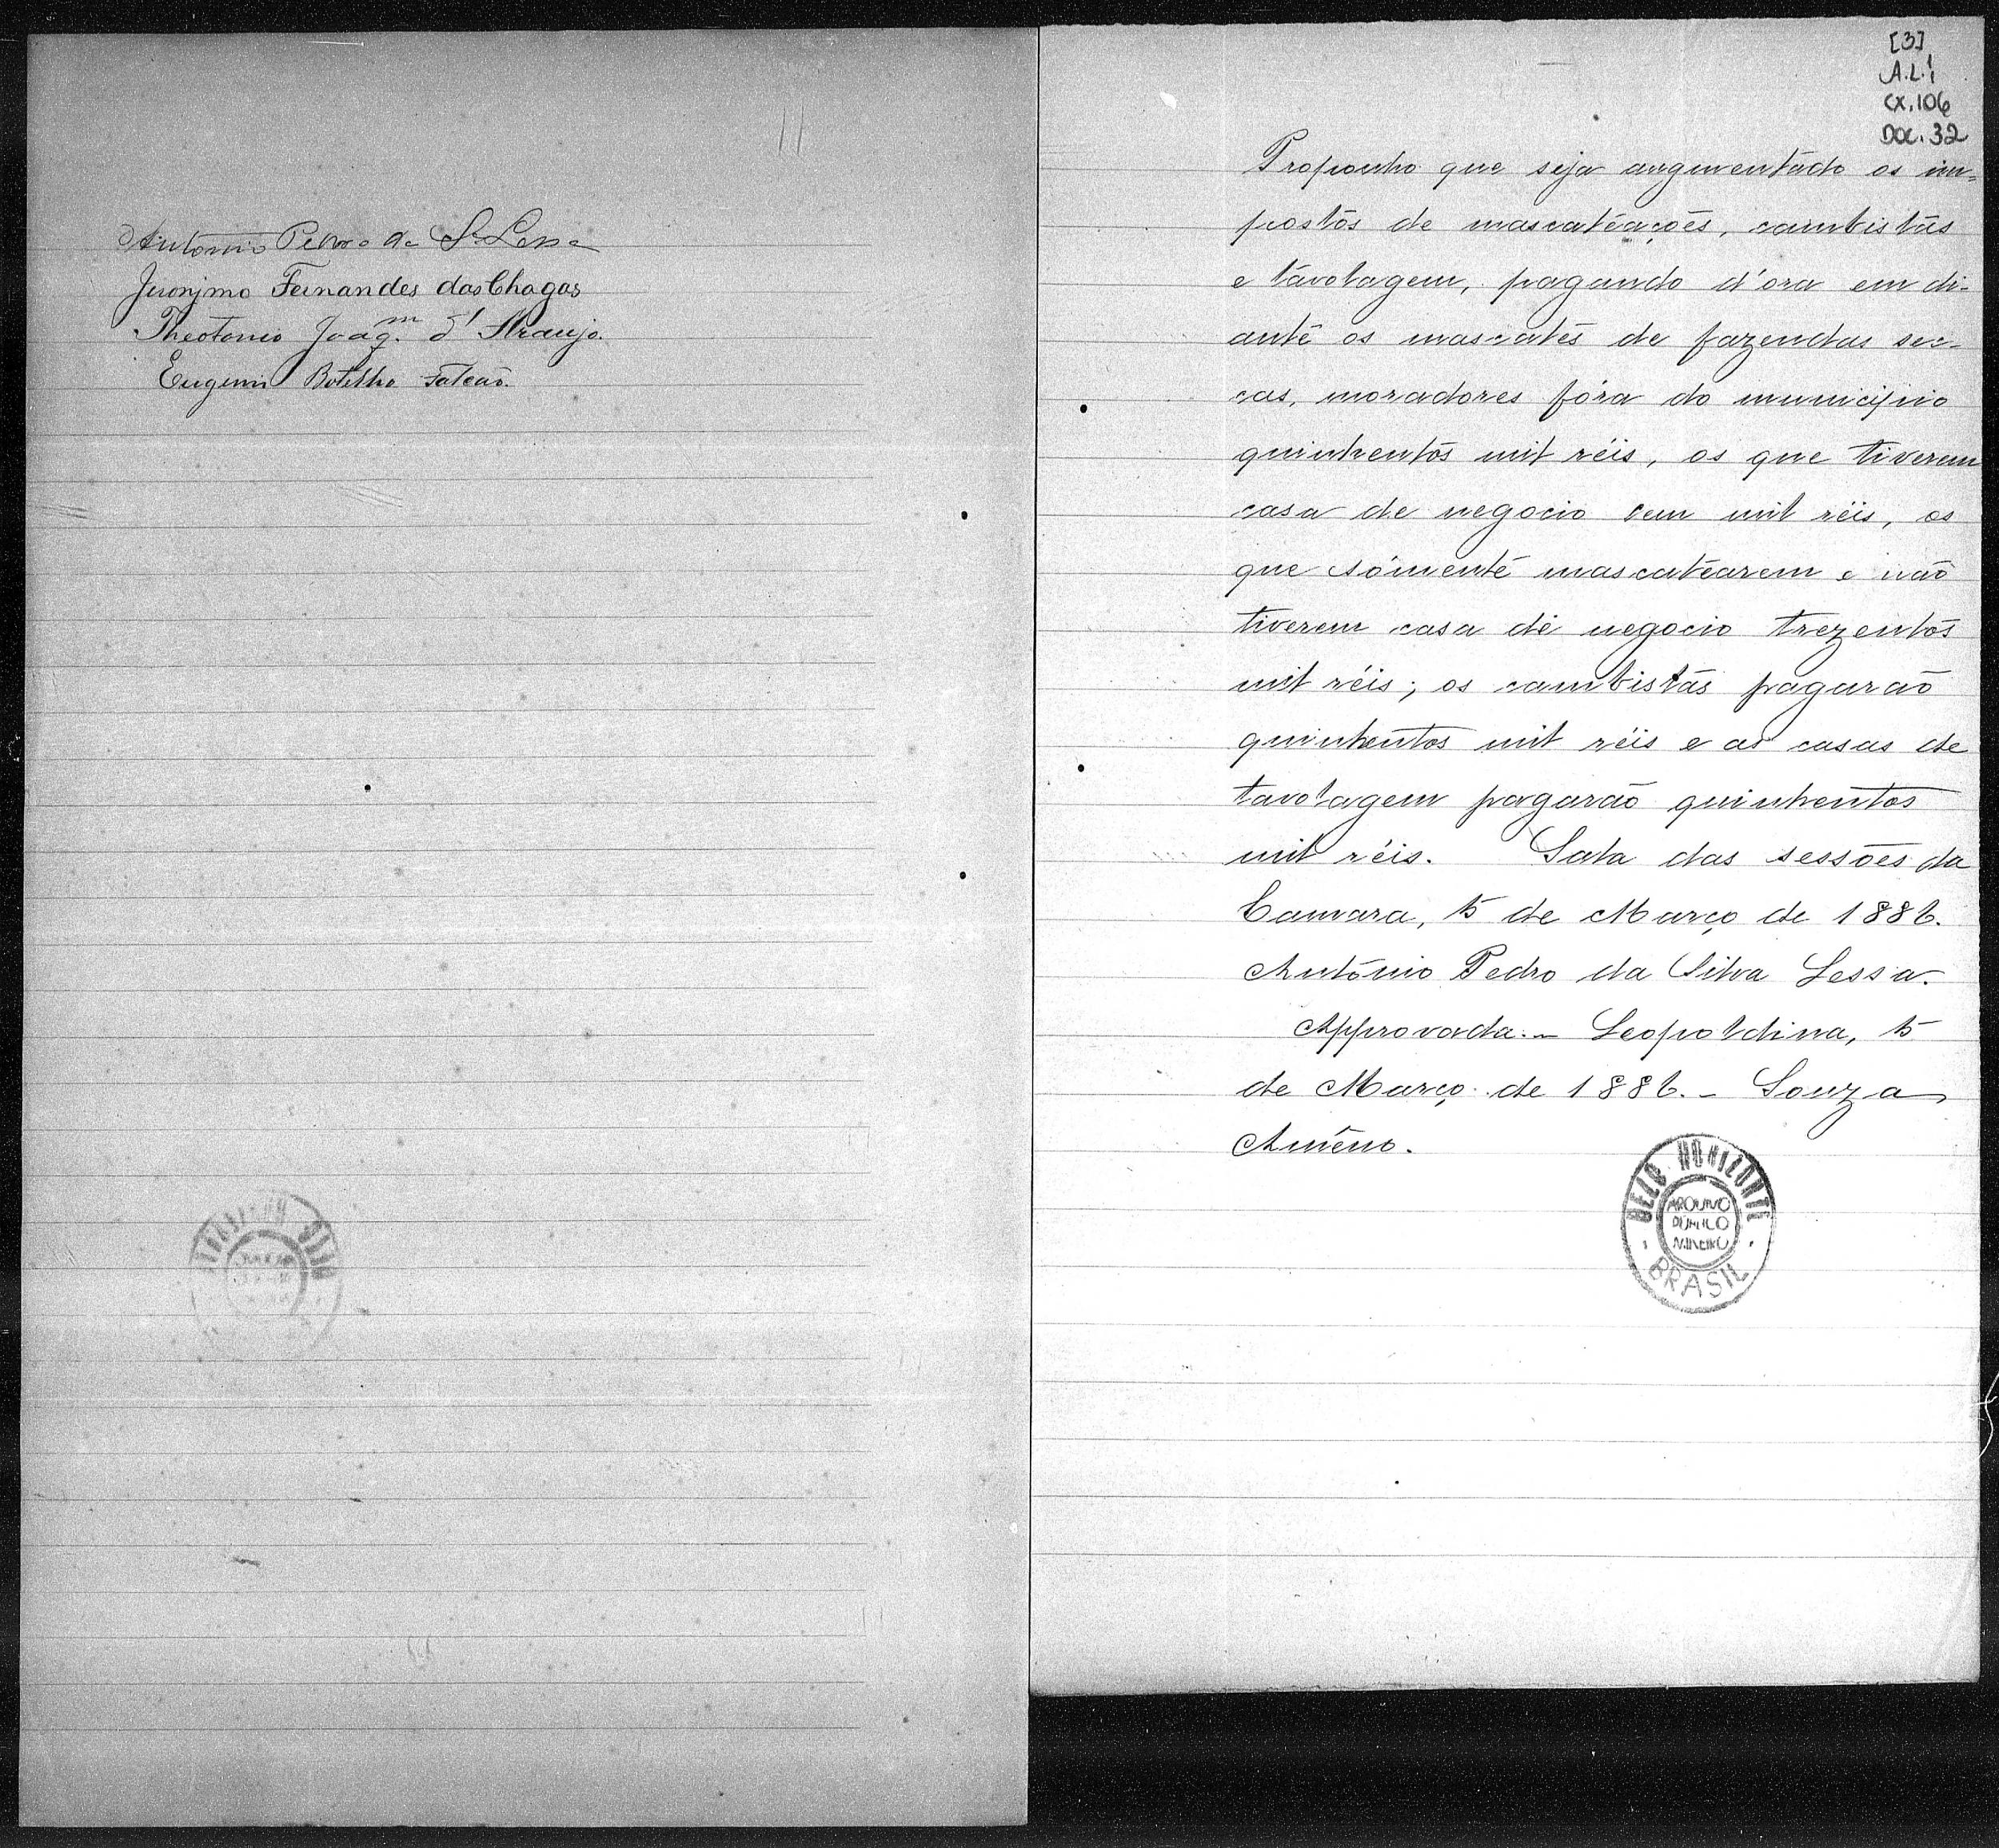 Antonio Pedro da S.ª Lessa
Jeronymo Fernandes das Chagas
Theotonio Joaq.m d'Araujo.
Eugenio Botelho Falcão.
[3]
A.L.1
CX.106
DOC.32
Proponho que seja augmentado os im=
postos de mascateações, cambistas
e tavolagem, pagando d'ora em di-
ante os mascates de fazendas sec-
cas, moradores fóra do municipio
quinhentos mil réis, os que tiverem
casa de negocio cem mil réis, os
que sómente mascatearem e não
tiverem casa de negocio trezentos
mil réis; os cambistas pagarão
quinhentos mil réis e as casas de
tavolagem pagarão quinhentos
mil réis. Sala das sessões da
Camara, 15 de Março de 1886.
Antonio Pedro da Silva Lessa.
Approvada.- Leopoldina, 15
de Março de 1886.- Souza
Amêno.
BELO HORIZONTE
ARQUIVO
PÚBLICO
MINEIRO
BRASIL